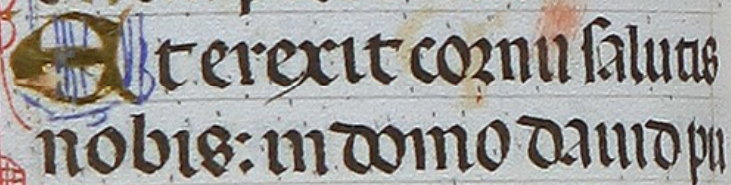 Et erexit cornu salutis
nobis: in domo dauid pu